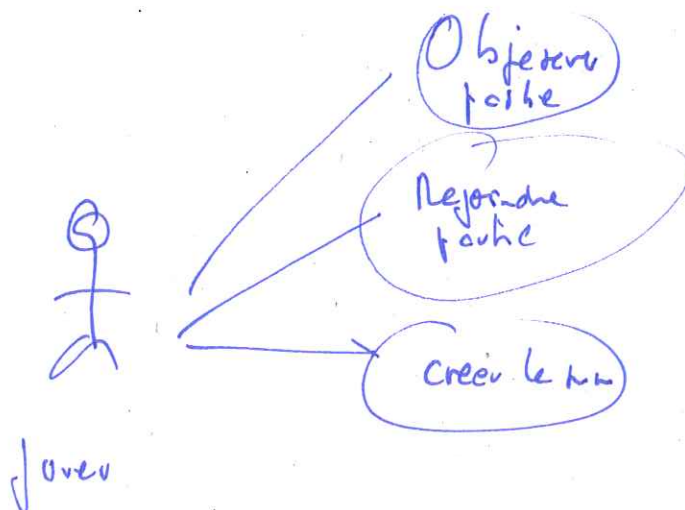 Observer
partie
Rejoindre
partie
créer le
Joueu